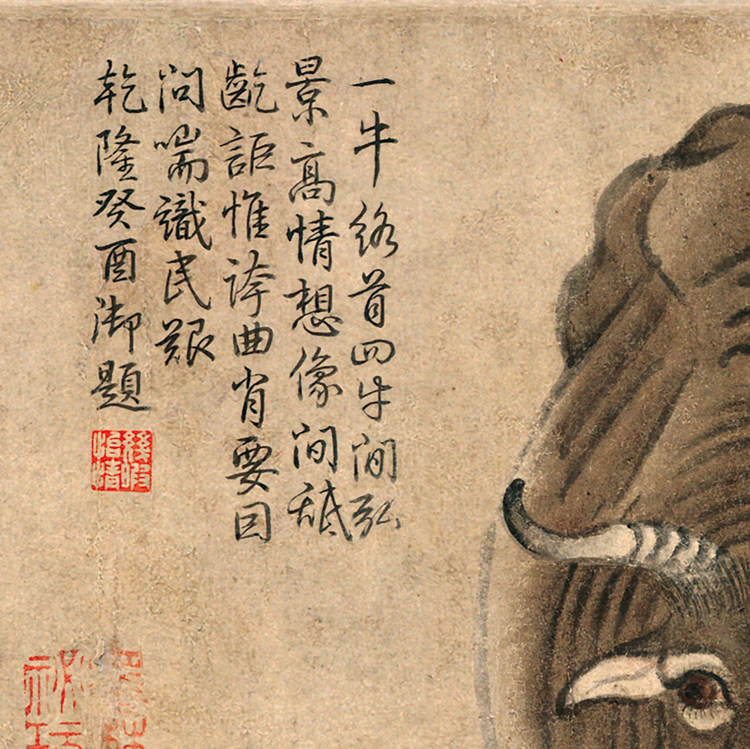 一牛絡首四牛間弘
景高情想像間舐
齕詎惟誇曲肖要因
問喘識民艱
乾隆癸酉御題
幾暇怡情